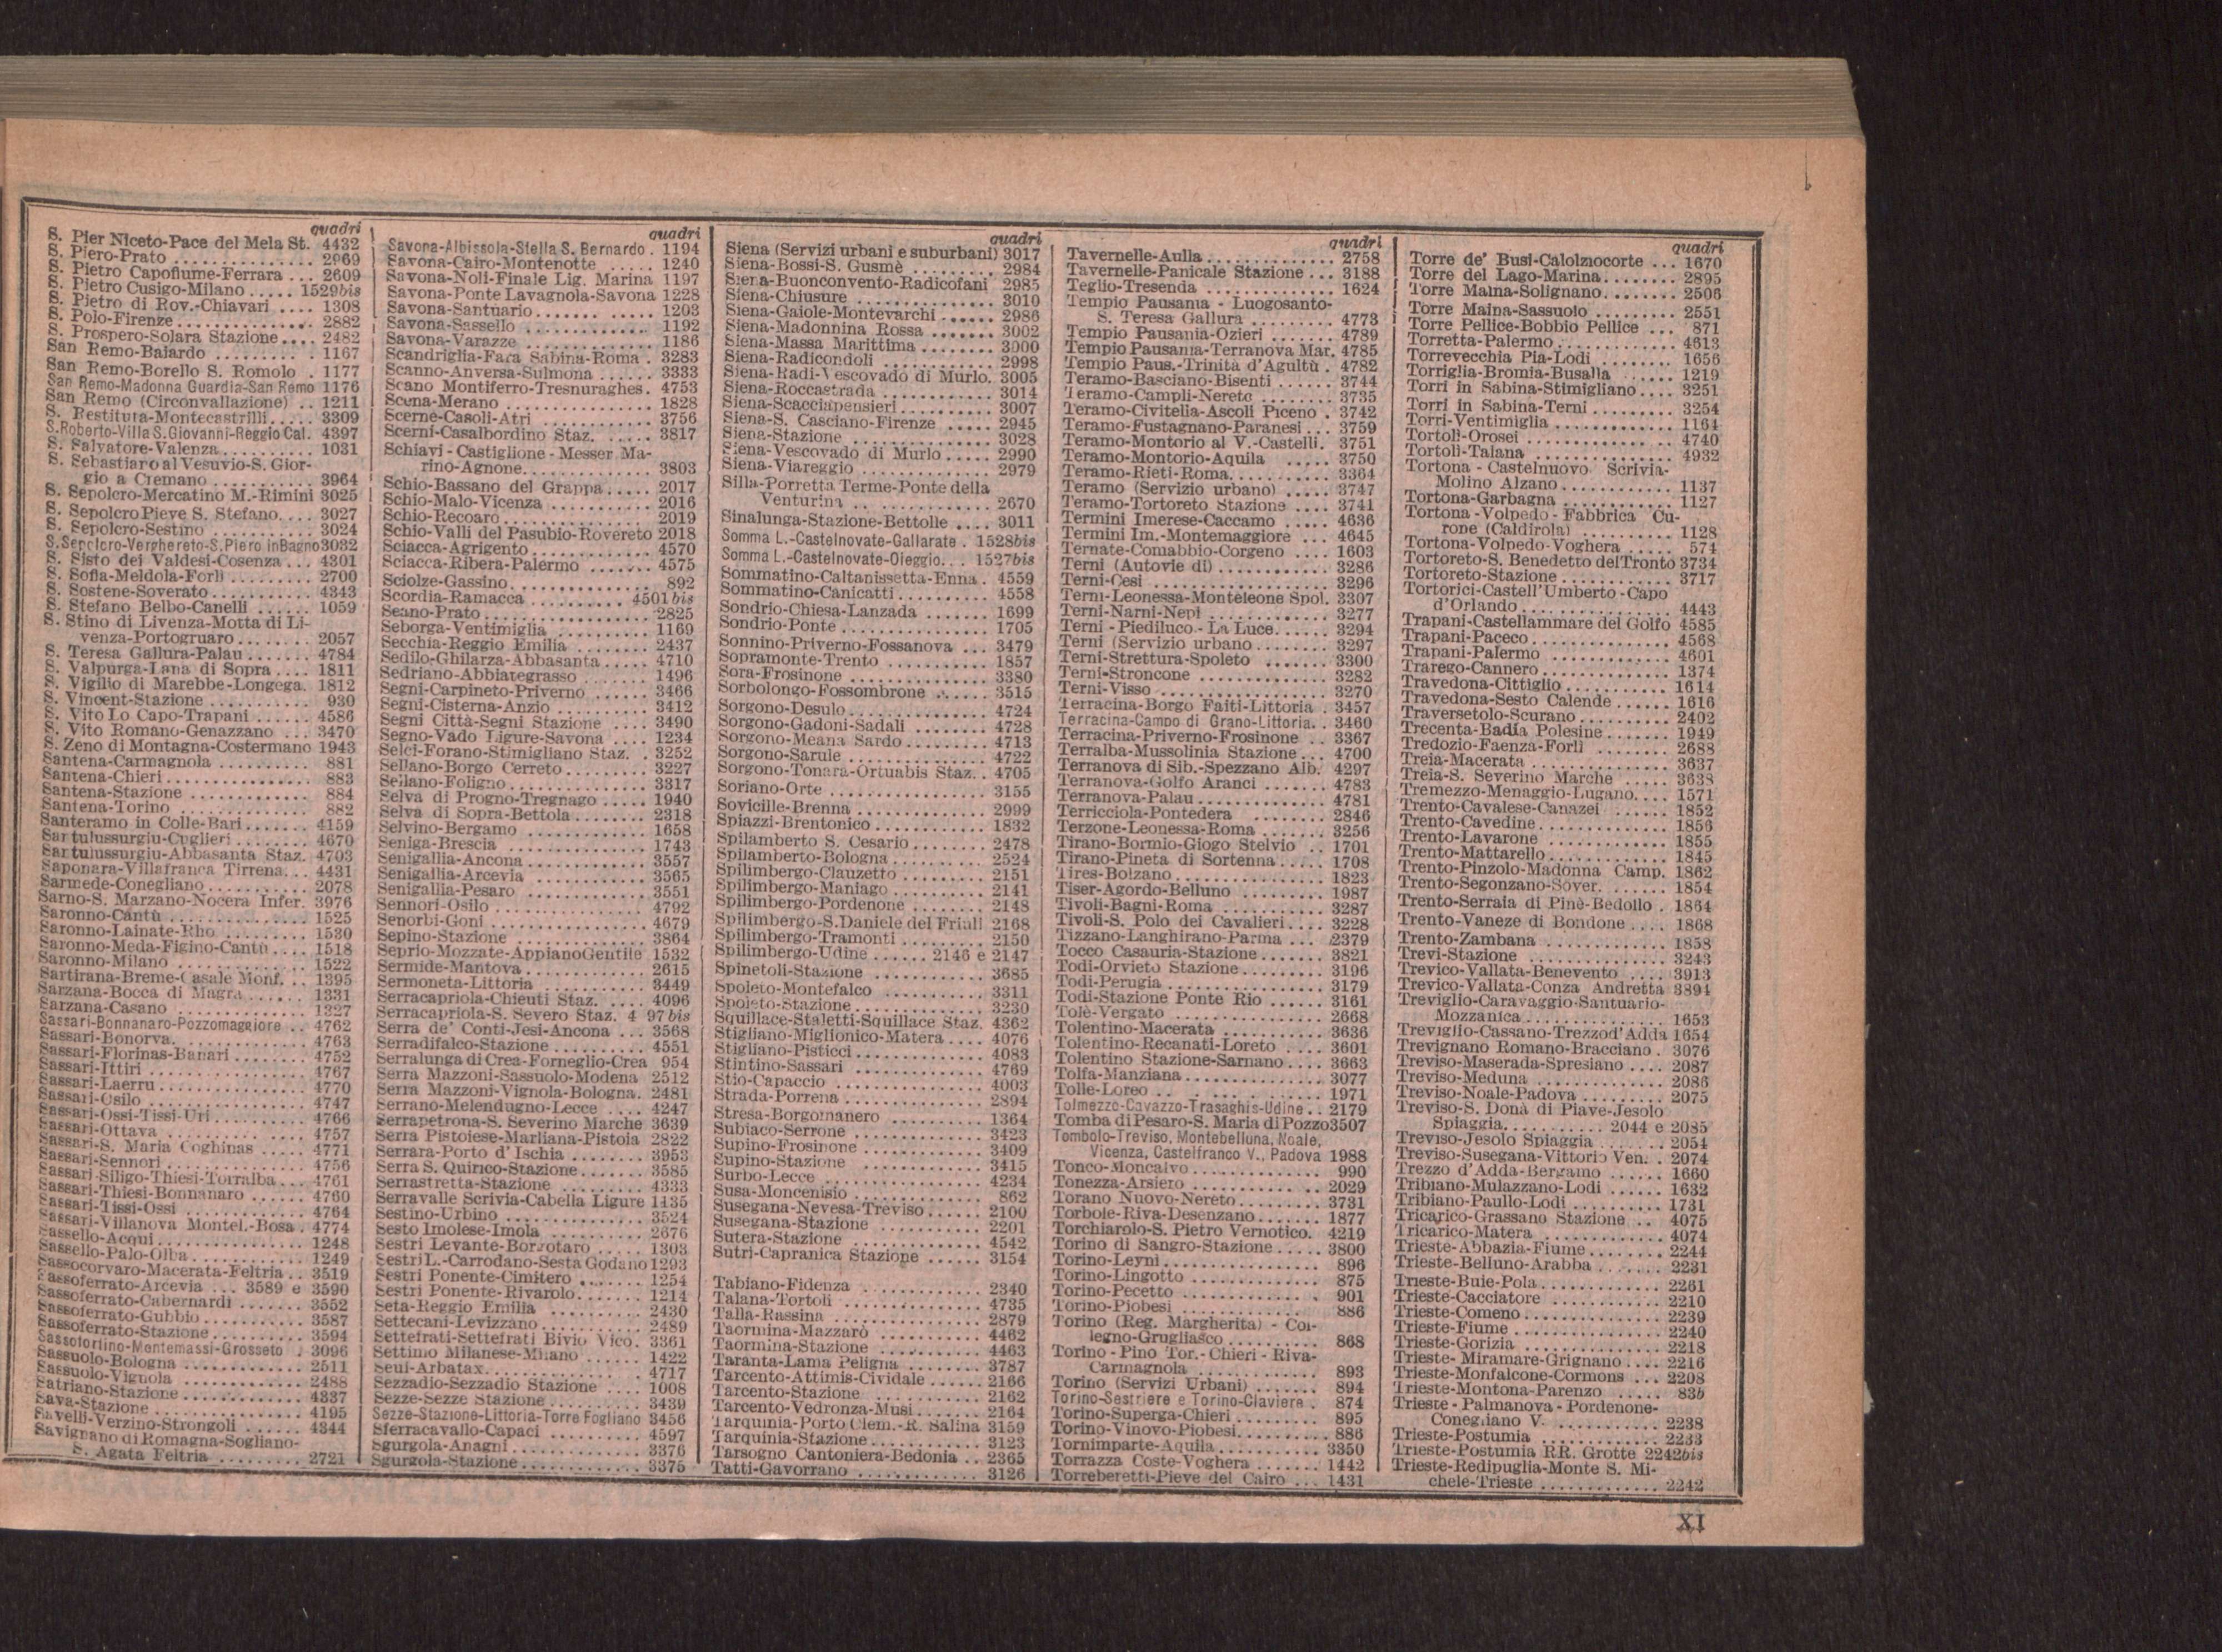 quadri
S. Pier Niceto-Pace del Mela St. 4432
S. Piero-Prato ............... 2969
S. Pietro Capofiume-Ferrara ... 2609
S. Pietro Cusigo-Milano ..... 1529bis
S. Pietro di Rov.-Chiavari .... 1308
S. Polo-Firenze ............... 2882
S. Prospero-Solara Stazione .... 2482
San Remo-Baiardo .......... 1167
San Remo-Borello S. Romolo . 1177
San Remo-Madonna Guardia-San Remo 1176
San Remo (Circonvallazione) .. 1211
S. Restituta-Montecastrilli ..... 3309
S.Roberto-Villa S.Giovanni-Reggio Cal. 4397
S. Salvatore-Valenza .......... 1031
S. Sebastiano al Vesuvio-S. Gior-
gio a Cremano ........... 3964
S. Sepolcro-Mercatino M.-Rimini 3025
S. Sepolcro Pieve S. Stefano.... 3027
S. Sepolcro-Sestino ........... 3024
S.Sepolcro-Verghereto-S.Piero in Bagno 3032
S. Sisto dei Valdesi-Cosenza ... 4301
S. Sofia-Meldola-Forlì ......... 2700
S. Sostene-Soverato ........... 4343
S. Stefano Belbo-Canelli ...... 1059
S. Stino di Livenza-Motta di Li-
venza-Portogruaro ........ 2057
S. Teresa Gallura-Palau ....... 4784
S. Valpurga-Lana di Sopra .... 1811
S. Vigilio di Marebbe-Longega. 1812
S. Vincent-Stazione ........... 930
S. Vito Lo Capo-Trapani ...... 4586
S. Vito Romano-Genazzano ... 3470
S. Zeno di Montagna-Costermano 1943
Santena-Carmagnola .......... 881
Santena-Chieri ............... 883
Santena-Stazione ............. 884
Santena-Torino ............... 882
Santeramo in Colle-Bari ....... 4159
Santulussurgiu-Cuglieri ........ 4670
Santulussurgiu-Abbasanta Staz. 4703
Saponara-Villafranca Tirrena... 4431
Sarmede-Conegliano ........... 2078
Sarno-S. Marzano-Nocera Infer. 3976
Saronno-Cantù ............... 1525
Saronno-Lainate-Rho ......... 1530
Saronno-Meda-Figino-Cantù ... 1518
Saronno-Milano .............. 1522
Sartirana-Breme-Casale Monf. .. 1395
Sarzana-Bocca di Magra ...... 1331
Sarzana-Casano .............. 1327
Sassari-Bonnanaro-Pozzomaggiore .. 4762
Sassari-Bonorva. .............. 4763
Sassari-Florinas-Banari ........ 4752
Sassari-Ittiri ................. 4767
Sassari-Laerru ................ 4770
Sassari-Osilo ................. 4747
Sassari-Ossi-Tissi-Uri .......... 4766
Sassari-Ottava ............... 4757
Sassari-S. Maria Coghinas ..... 4771
Sassari-Sennori ............... 4756
Sassari-Siligo-Thiesi-Torralba ... 4761
Sassari-Thiesi-Bonnanaro ...... 4760
Sassari-Tissi-Ossi ............. 4764
Sassari-Villanova Montel.-Bosa . 4774
Sassello-Acqui ................ 1248
Sassello-Palo-Olba ............ 1249
Sassocorvaro-Macerata-Feltria .. 3519
Sassoferrato-Arcevia ... 3589 e 3590
Sassoferrato-Cabernardi ....... 3552
Sassoferrato-Gubbio ........... 3587
Sassoferrato-Stazione .......... 3594
Sassofortino-Montemassi-Grosseto . 3096
Sassuolo-Bologna ............. 2511
Sassuolo-Vignola ............. 2488
Satriano-Stazione ............. 4337
Sava-Stazione ................ 4195
Savelli-Verzino-Strongoli ...... 4344
Savignano di Romagna-Sogliano-
S. Agata Feltria ......... 2721
quadri
Savona-Albissola-Stella S. Bernardo . 1194
Savona-Cairo-Montenotte ..... 1240
Savona-Noli-Finale Lig. Marina 1197
Savona-Ponte Lavagnola-Savona 1228
Savona-Santuario ....... ..... 1203
Savona-Sassello ............. 1192
Savona-Varazze ............. 1186
Scandriglia-Fara Sabina-Roma . 3283
Scanno-Anversa-Sulmona ...... 3333
Scano Montiferro-Tresnuraghes. 4753
Scena-Merano ............... 1828
Scerne-Casoli-Atri ............ 3756
Scerni-Casalbordino Staz. ..... 3817
Schiavi - Castiglione - Messer Ma-
rino-Agnone.............. 3803
Schio-Bassano del Grappa ..... 2017
Schio-Malo-Vicenza ........... 2016
Schio-Recoaro ................ 2019
Schio-Valli del Pasubio-Rovereto 2018
Sciacca-Agrigento ............. 4570
Sciacca-Ribera-Palermo ....... 4575
Sciolze-Gassino ............... 892
Scordia-Ramacca .......... 4501bis
Seano-Prato .................. 2825
Seborga-Ventimiglia .......... 1169
Secchia-Reggio Emilia ........ 2437
Sedilo-Ghilarza-Abbasanta ..... 4710
Sedriano-Abbiategrasso ....... 1496
Segni-Carpineto-Priverno ...... 3466
Segni-Cisterna-Anzio .......... 3412
Segni Città-Segni Stazione .... 3490
Segno-Vado Ligure-Savona .... 1234
Selci-Forano-Stimigliano Staz. . 3252
Sellano-Borgo Cerreto ......... 3227
Sellano-Foligno ............... 3317
Selva di Progno-Tregnago ..... 1940
Selva di Sopra-Bettola ........ 2318
Selvino-Bergamo ............. 1658
Seniga-Brescia ............... 1743
Senigallia-Ancona ............ 3557
Senigallia-Arcevia ............ 3565
Senigallia-Pesaro ............. 3551
Sennori-Osilo ................ 4792
Senorbì-Goni ................. 4679
Sepino-Stazione .............. 3864
Seprio-Mozzate-Appiano Gentile 1532
Sermide-Mantova ............. 2615
Sermoneta-Littoria ........... 3449
Serracapriola-Chieuti Staz. .... 4096
Serracapriola-S. Severo Staz. 4 97bis
Serra de' Conti-Jesi-Ancona ... 3568
Serradifalco-Stazione .......... 4551
Serralunga di Crea-Forneglio-Crea 954
Serra Mazzoni-Sassuolo-Modena 2512
Serra Mazzoni-Vignola-Bologna. 2481
Serrano-Melendugno-Lecce .... 4247
Serrapetrona-S. Severino Marche 3639
Serra Pistoiese-Marliana-Pistoia 2822
Serrara-Porto d' Ischia ........ 3953
Serra S. Quirico-Stazione ....... 3585
Serrastretta-Stazione .......... 4333
Serravalle Scrivia-Cabella Ligure 1135
Sestino-Urbino ............... 3524
Sesto Imolese-Imola .......... 2676
Sestri Levante-Borgotaro ..... 1303
Sestri L.-Carrodano-Sesta Godano 1293
Sestri Ponente-Cimitero ....... 1254
Sestri Ponente-Rivarolo........ 1214
Seta-Reggio Emilia .......... 2430
Settecani-Levizzano ........... 2489
Settefrati-Settefrati Bivio Vico. 3361
Settimo Milanese-Milano ...... 1422
Seui-Arbatax................. 4717
Sezzadio-Sezzadio Stazione .... 1008
Sezze-Sezze Stazione .......... 3439
Sezze-Stazione-Littoria-Torre Fogliano 3456
Sferracavallo-Capaci .......... 4597
Sgurgola-Anagni .............. 3376
Sgurgola-Stazione ............. 3375
quadri
Siena (Servizi urbani e suburbani) 3017
Siena-Bossi-S. Gusmè ......... 2984
Siena-Buonconvento-Radicofani 2985
Siena-Chiusure ............... 3010
Siena-Gaiole-Montevarchi ...... 2986
Siena-Madonnina Rossa ....... 3002
Siena-Massa Marittima ........ 3000
Siena-Radicondoli ............ 2998
Siena-Radi-Vescovado di Murlo. 3005
Siena-Roccastrada ............ 3014
Siena-Scacciapensieri .......... 3007
Siena-S. Casciano-Firenze ..... 2945
Siena-Stazione ............... 3028
Siena-Vescovado di Murlo ..... 2990
Siena-Viareggio .............. 2979
Silla-Porretta Terme-Ponte della
Venturina .............. 2670
Sinalunga-Stazione-Bettolle .... 3011
Somma L.-Castelnovate-Gallarate . 1528bis
Somma L.-Castelnovate-Oleggio... 1527bis
Sommatino-Caltanissetta-Enna. 4559
Sommatino-Canicatti .......... 4558
Sondrio-Chiesa-Lanzada ....... 1699
Sondrio-Ponte ................ 1705
Sonnino-Priverno-Fossanova ... 3479
Sopramonte-Trento ........... 1857
Sora-Frosinone ............... 3380
Sorbolongo-Fossombrone ..... 3515
Sorgono-Desulo ............... 4724
Sorgono-Gadoni-Sadali ........ 4728
Sorgono-Meana Sardo ......... 4713
Sorgono-Sarule ............... 4722
Sorgono-Tonara-Ortuabis Staz. . 4705
Soriano-Orte ................. 3155
Sovicille-Brenna .............. 2999
Spiazzi-Brentonico ............ 1832
Spilamberto S. Cesario ........ 2478
Spilamberto-Bologna .......... 2524
Spilimbergo-Clauzetto ......... 2151
Spilimbergo-Maniago .......... 2141
Spilimbergo-Pordenone ........ 2148
Spilimbergo-S.Daniele del Friuli 2168
Spilimbergo-Tramonti ......... 2150
Spilimbergo-Udine ...... 2146 e 2147
Spinetoli-Stazione ............ 3685
Spoleto-Montefalco ........... 3311
Spoleto-Stazione .............. 3230
Squillace-Staletti-Squillace Staz. 4362
Stigliano-Miglionico-Matera .... 4076
Stigliano-Pisticci .............. 4083
Stintino-Sassari .............. 4769
Stio-Capaccio ................ 4003
Strada-Porrena ............... 2894
Stresa-Borgomanero .......... 1364
Subiaco-Serrone .............. 3423
Supino-Frosinone ............. 3409
Supino-Stazione .............. 3415
Surbo-Lecce ................. 4234
Susa-Moncenisio .............. 862
Susegana-Nevesa-Treviso ...... 2100
Susegana-Stazione ............ 2201
Sutera-Stazione .............. 4542
Sutri-Capranica Stazione ...... 3154
Tabiano-Fidenza ............. 2340
Talana-Tortolì ............... 4735
Talla-Rassina ................ 2879
Taormina-Mazzarò ........... 4462
Taormina-Stazione ........... 4463
Taranta-Lama Peligna ........ 3787
Tarcento-Attimis-Cividale ...... 2166
Tarcento-Stazione ............ 2162
Tarcento-Vedronza-Musi ....... 2164
Tarquinia-Porto Clem.-R. Salina 3159
Tarquinia-Stazione ............ 3123
Tarsogno Cantoniera-Bedonia .. 2365
Tatti-Gavorrano .............. 3126
quadri
Tavernelle-Aulla .............. 2758
Tavernelle-Panicale Stazione ... 3188
Teglio-Tresenda .............. 1624
Tempio Pausania - Luogosanto-
S. Teresa Gallura ......... 4773
Tempio Pausania-Ozieri ....... 4789
Tempio Pausania-Terranova Mar. 4785
Tempio Paus.-Trinità d'Agultù . 4782
Teramo-Basciano-Bisenti ...... 3744
Teramo-Campli-Nereto ........ 3735
Teramo-Civitella-Ascoli Piceno . 3742
Teramo-Fustagnano-Paranesi ... 3759
Teramo-Montorio al V.-Castelli. 3751
Teramo-Montorio-Aquila ..... 3750
Teramo-Rieti-Roma........... 3364
Teramo (Servizio urbano) ..... 3747
Teramo-Tortoreto Stazione .... 3741
Termini Imerese-Caccamo ..... 4636
Termini Im.-Montemaggiore ... 4645
Ternate-Comabbio-Corgeno .... 1603
Terni (Autovie di) ............ 3286
Terni-Cesi ................... 3296
Terni-Leonessa-Monteleone Spol. 3307
Terni-Narni-Nepi ............ 3277
Terni - Piediluco - La Luce...... 3294
Terni (Servizio urbano ........ 3297
Terni-Strettura-Spoleto ....... 3300
Terni-Stroncone .............. 3282
Terni-Visso .................. 3270
Terracina-Borgo Faiti-Littoria . 3457
Terracina-Campo di Grano-Littoria. . 3460
Terracina-Priverno-Frosinone .. 3367
Terralba-Mussolinia Stazione ... 4700
Terranova di Sib.-Spezzano Alb. 4297
Terranova-Golfo Aranci ....... 4783
Terranova-Palau .............. 4781
Terricciola-Pontedera ......... 2846
Terzone-Leonessa-Roma ....... 3256
Tirano-Bormio-Giogo Stelvio .. 1701
Tirano-Pineta di Sortenna ..... 1708
Tires-Bolzano ................ 1823
Tiser-Agordo-Belluno ......... 1987
Tivoli-Bagni-Roma ............ 3287
Tivoli-S. Polo dei Cavalieri .... 3228
Tizzano-Langhirano-Parma ... 2379
Tocco Casauria-Stazione ....... 3821
Todi-Orvieto Stazione ......... 3196
Todi-Perugia ................. 3179
Todi-Stazione Ponte Rio ...... 3161
Tolè-Vergato ................. 2668
Tolentino-Macerata ........... 3636
Tolentino-Recanati-Loreto .... 3601
Tolentino Stazione-Sarnano .... 3663
Tolfa-Manziana ............... 3077
Tolle-Loreo .................. 1971
Tolmezzo-Cavazzo-Trasaghis-Udine .. 2179
Tomba di Pesaro-S. Maria di Pozzo 3507
Tombolo-Treviso, Montebelluna, Noale,
Vicenza, Castelfranco V., Padova 1988
Tonco-Moncalvo .............. 990
Tonezza-Arsiero .............. 2029
Torano Nuovo-Nereto ......... 3731
Torbole-Riva-Desenzano ....... 1877
Torchiarolo-S. Pietro Vernotico. 4219
Torino di Sangro-Stazione ..... 3800
Torino-Leynì ................. 896
Torino-Lingotto .............. 875
Torino-Pecetto ............... 901
Torino-Piobesi ............... 886
Torino (Reg. Margherita) - Col-
legno-Grugliasco .......... 868
Torino - Pino Tor. - Chieri - Riva-
Carmagnola .............. 893
Torino (Servizi Urbani) ....... 894
Torino-Sestriere e Torino-Claviere . 874
Torino-Superga-Chieri ......... 895
Torino-Vinovo-Piobesi......... 886
Tornimparte-Aquila ........... 3350
Torrazza Coste-Voghera ....... 1442
Torreberetti-Pieve del Cairo ... 1431
quadri
Torre de' Busi-Calolziocorte ... 1670
Torre del Lago-Marina ........ 2895
Torre Maina-Solignano ........ 2506
Torre Maina-Sassuolo ......... 2551
Torre Pellice-Bobbio Pellice ... 871
Torretta-Palermo ............. 4613
Torrevecchia Pia-Lodi ........ 1656
Torriglia-Bromia-Busalla ...... 1219
Torri in Sabina-Stimigliano .... 3251
Torri in Sabina-Terni ......... 3254
Torri-Ventimiglia ............. 1164
Tortolì-Orosei ................ 4740
Tortolì-Talana ............... 4932
Tortona - Castelnuovo Scrivia-
Molino Alzano ............ 1137
Tortona-Garbagna ............ 1127
Tortona - Volpedo - Fabbrica Cu-
rone (Caldirola) .......... 1128
Tortona-Volpedo-Voghera ..... 574
Tortoreto-S. Benedetto del Tronto 3734
Tortoreto-Stazione ............ 3717
Tortorici-Castell'Umberto - Capo
d'Orlando ................ 4443
Trapani-Castellammare del Golfo 4585
Trapani-Paceco ............... 4568
Trapani-Palermo ............. 4601
Trarego-Cannero .............. 1374
Travedona-Cittiglio ........... 1614
Travedona-Sesto Calende ...... 1616
Traversetolo-Scurano .......... 2402
Trecenta-Badia Polesine ....... 1949
Tredozio-Faenza-Forlì ........ 2688
Treia-Macerata ............... 3637
Treia-S. Severino Marche ..... 3638
Tremezzo-Menaggio-Lugano.... 1571
Trento-Cavalese-Canazei ...... 1852
Trento-Cavedine .............. 1856
Trento-Lavarone ............. 1855
Trento-Mattarello ............. 1845
Trento-Pinzolo-Madonna Camp. 1862
Trento-Segonzano-Sover. ...... 1854
Trento-Serraia di Pinè-Bedollo . 1864
Trento-Vaneze di Bondone .... 1868
Trento-Zambana ............. 1858
Trevi-Stazione ............... 3243
Trevico-Vallata-Benevento .... 3913
Trevico-Vallata-Conza Andretta 3894
Treviglio-Caravaggio-Santuario-
Mozzanica ............... 1653
Treviglio-Cassano-Trezzo d'Adda 1654
Trevignano Romano-Bracciano . 3076
Treviso-Maserada-Spresiano .... 2087
Treviso-Meduna .............. 2086
Treviso-Noale-Padova ......... 2075
Treviso-S. Donà di Piave-Jesolo
Spiaggia........... 2044 e 2085
Treviso-Jesolo Spiaggia ....... 2054
Treviso-Susegana-Vittorio Ven. . 2074
Trezzo d'Adda-Bergamo ...... 1660
Tribiano-Mulazzano-Lodi ...... 1632
Tribiano-Paullo-Lodi .......... 1731
Tricarico-Grassano Stazione .. 4075
Tricarico-Matera ............. 4074
Trieste-Abbazia-Fiume ........ 2244
Trieste-Belluno-Arabba ....... 2231
Trieste-Buie-Pola ............. 2261
Trieste-Cacciatore ............ 2210
Trieste-Comeno ............... 2239
Trieste-Fiume ................ 2240
Trieste-Gorizia ............... 2218
Trieste- Miramare-Grignano .... 2216
Trieste-Monfalcone-Cormons ... 2208
Trieste-Montona-Parenzo ..... 835
Trieste - Palmanova - Pordenone-
Conegliano V. ............ 2238
Trieste-Postumia ............. 2233
Trieste-Postumia RR. Grotte 2242bis
Trieste-Redipuglia-Monte S. Mi-
chele-Trieste ............. 2242
XI